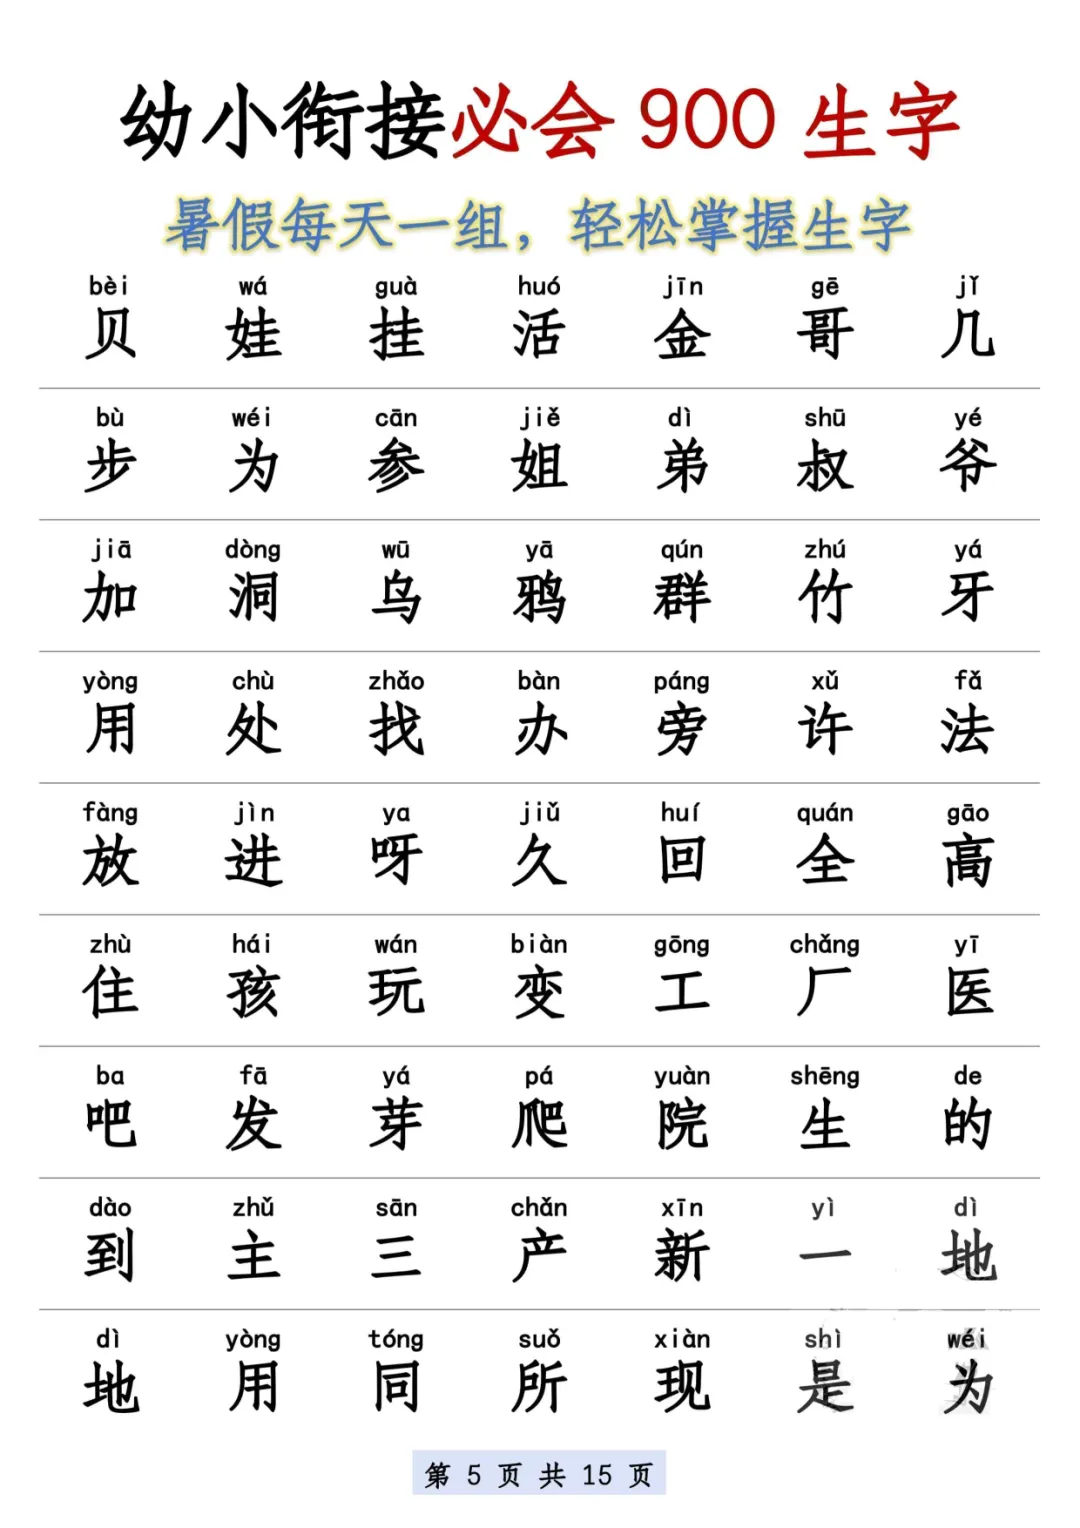 幼小衔接必会 900 生字
暑假每天一组，轻松掌握生字
bèi wá guà huó jīn gē jǐ
贝 娃 挂 活 金 哥 几
bù wéi cān jiě dì shū yé
步 为 参 姐 弟 叔 爷
jiā dòng wū yā qún zhú yá
加 洞 乌 鸦 群 竹 牙
yòng chù zhǎo bàn páng xǔ fǎ
用 处 找 办 旁 许 法
fàng jìn ya jiǔ huí quán gāo
放 进 呀 久 回 全 高
zhù hái wán biàn gōng chǎng yī
住 孩 玩 变 工 厂 医
ba fā yá pá yuàn shēng de
吧 发 芽 爬 院 生 的
dào zhǔ sān chǎn xīn yì dì
到 主 三 产 新 一 地
dì yòng tóng suǒ xiàn shì wéi
地 用 同 所 现 是 为
第 5 页 共 15 页